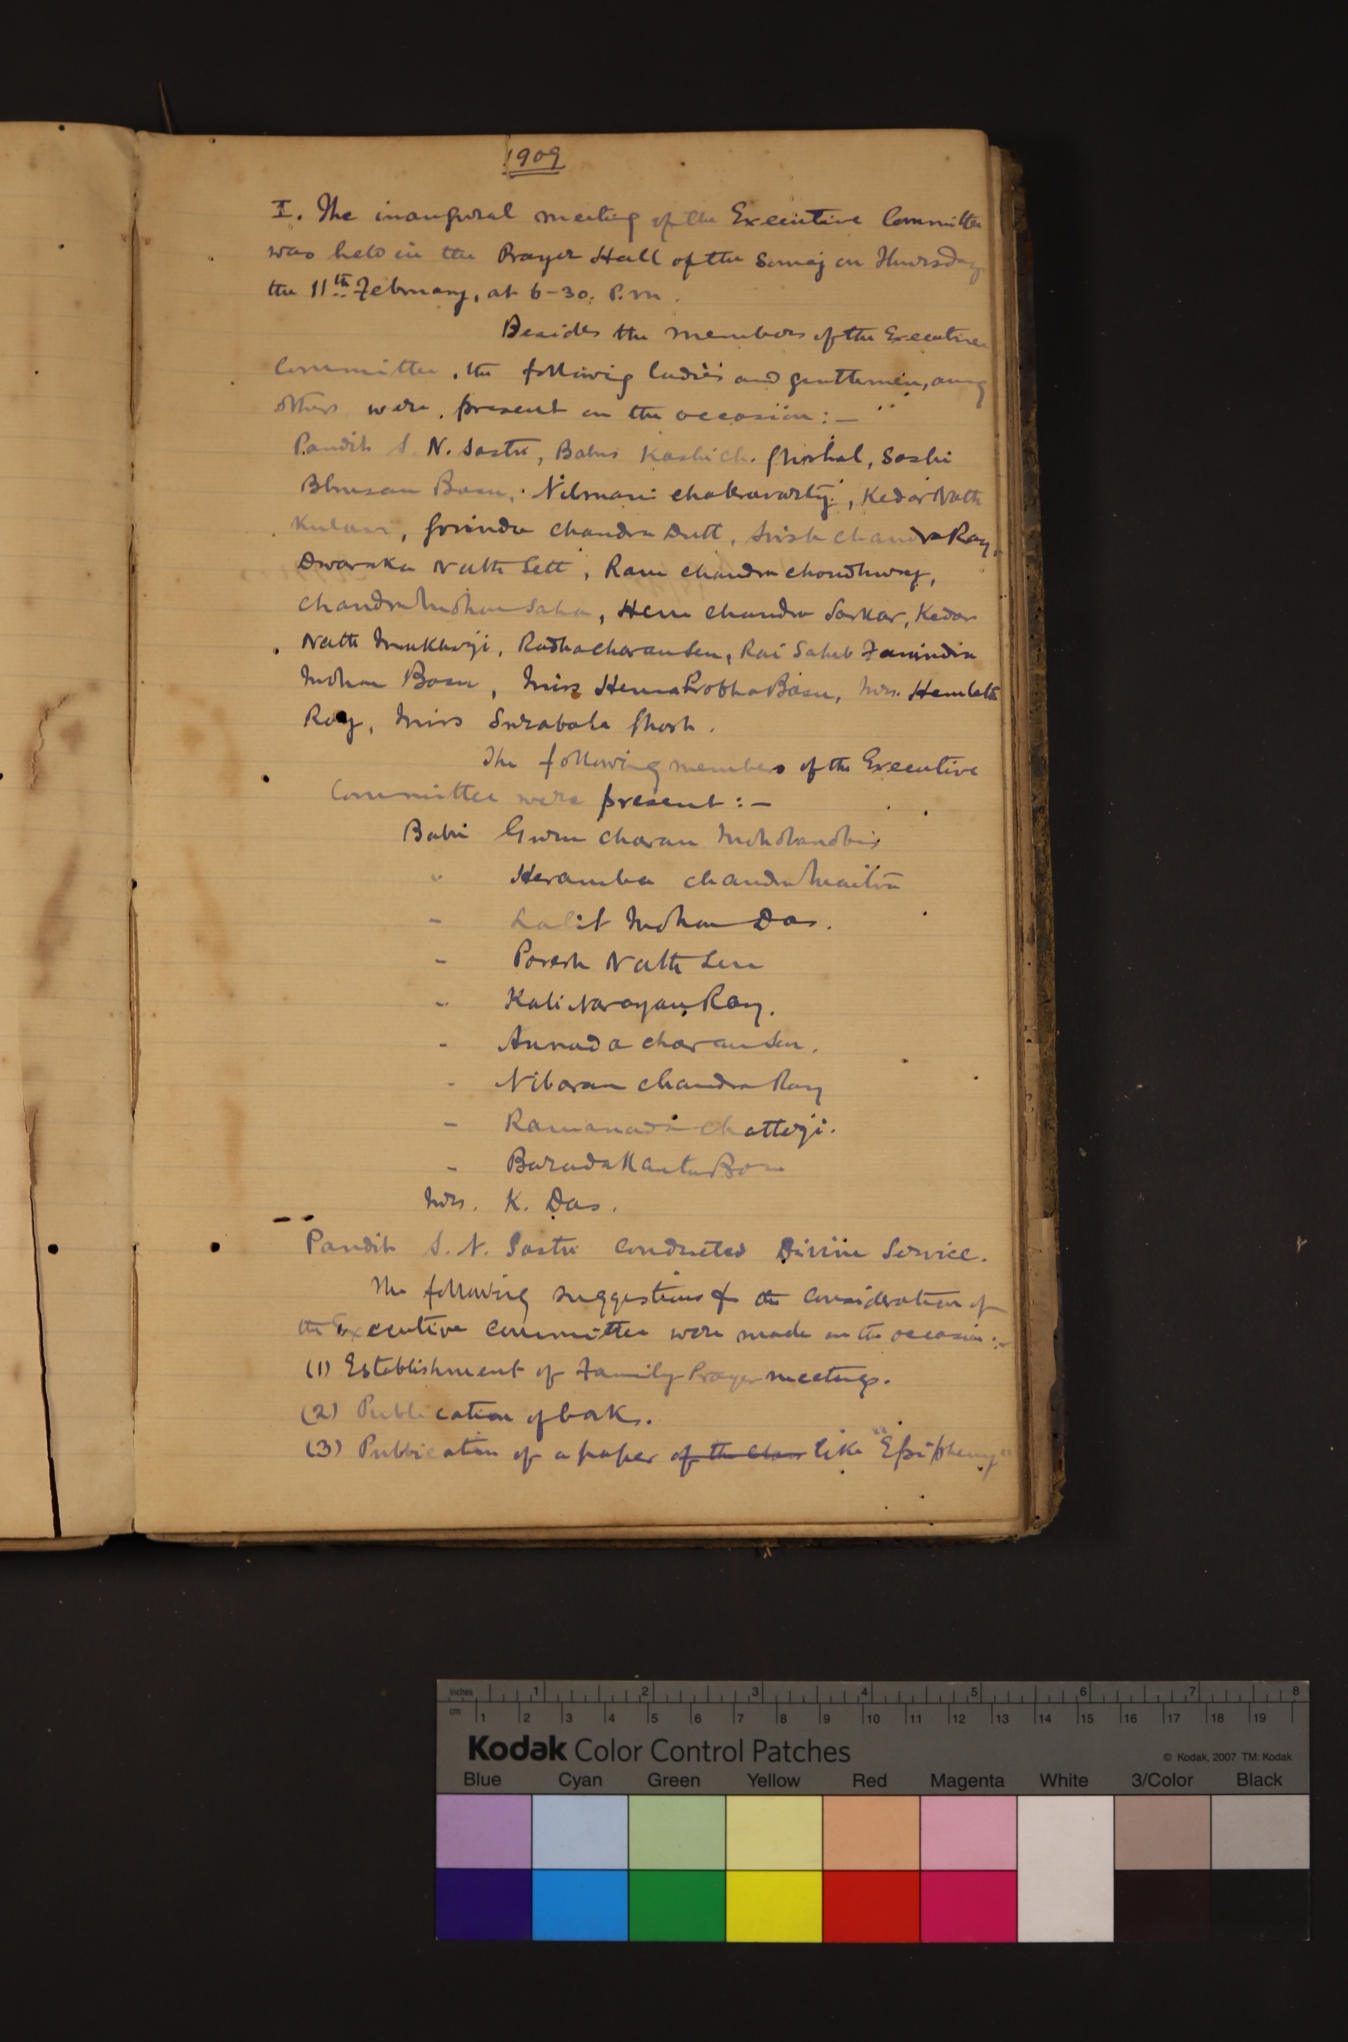 1909
I. The inaugural meeting of the Executive Committee
was held in the Prayer Hall of the Samaj on Thursday
the 11th February, at 6-30. P.m.
Besides the members of the Executive
Committee, the following ladies and gentlemen, among
others were present on the occasion:—
Pandit S. N. Sastri, Babus Kashi Ch. Ghoshal, Sashi
Bhusan Basu, Nilmani Chakravarty, Kedar Nath
Kulavi, Govinda Chandra Dutt, Srish Chandra Ray,
Dwaraka Nath Sett, Ram Chandra Choudhury,
Chandra Mohan Saha, Hem Chandra Sarkar, Kedar
Nath Mukherji, Radhacharan Sen, Rai Saheb Fanindra
Mohan Basu, Miss Hemaprobha Basu, Mrs. Hemlata
Ray, Miss Surabala Ghosh.
The following members of the Executive
Committee were present:—
Babu Guru Charan Moholanobis
" Heramba Chandra Maitra
" Lalit Mohan Das.
" Poresh Nath Sen
" Kali Narayan Ray.
" Annada Charan Sen.
" Nibaran Chandra Ray
" Ramananda Chatterji.
" Barada Kanta Bose
Mrs. K. Das.
Pandit S. N. Sastri conducted Divine Service.
The following suggestions for the consideration of
the Executive Committee were made on the occasion:—
(1) Establishment of Family Prayer meetings.
(2) Publication of books.
(3) Publication of a paper of the class like "Epiphany"
inches 1 2 3 4 5 6 7 8
cm 1 2 3 4 5 6 7 8 9 10 11 12 13 14 15 16 17 18 19
Kodak Color Control Patches © Kodak, 2007 TM: Kodak
Blue Cyan Green Yellow Red Magenta White 3/Color Black